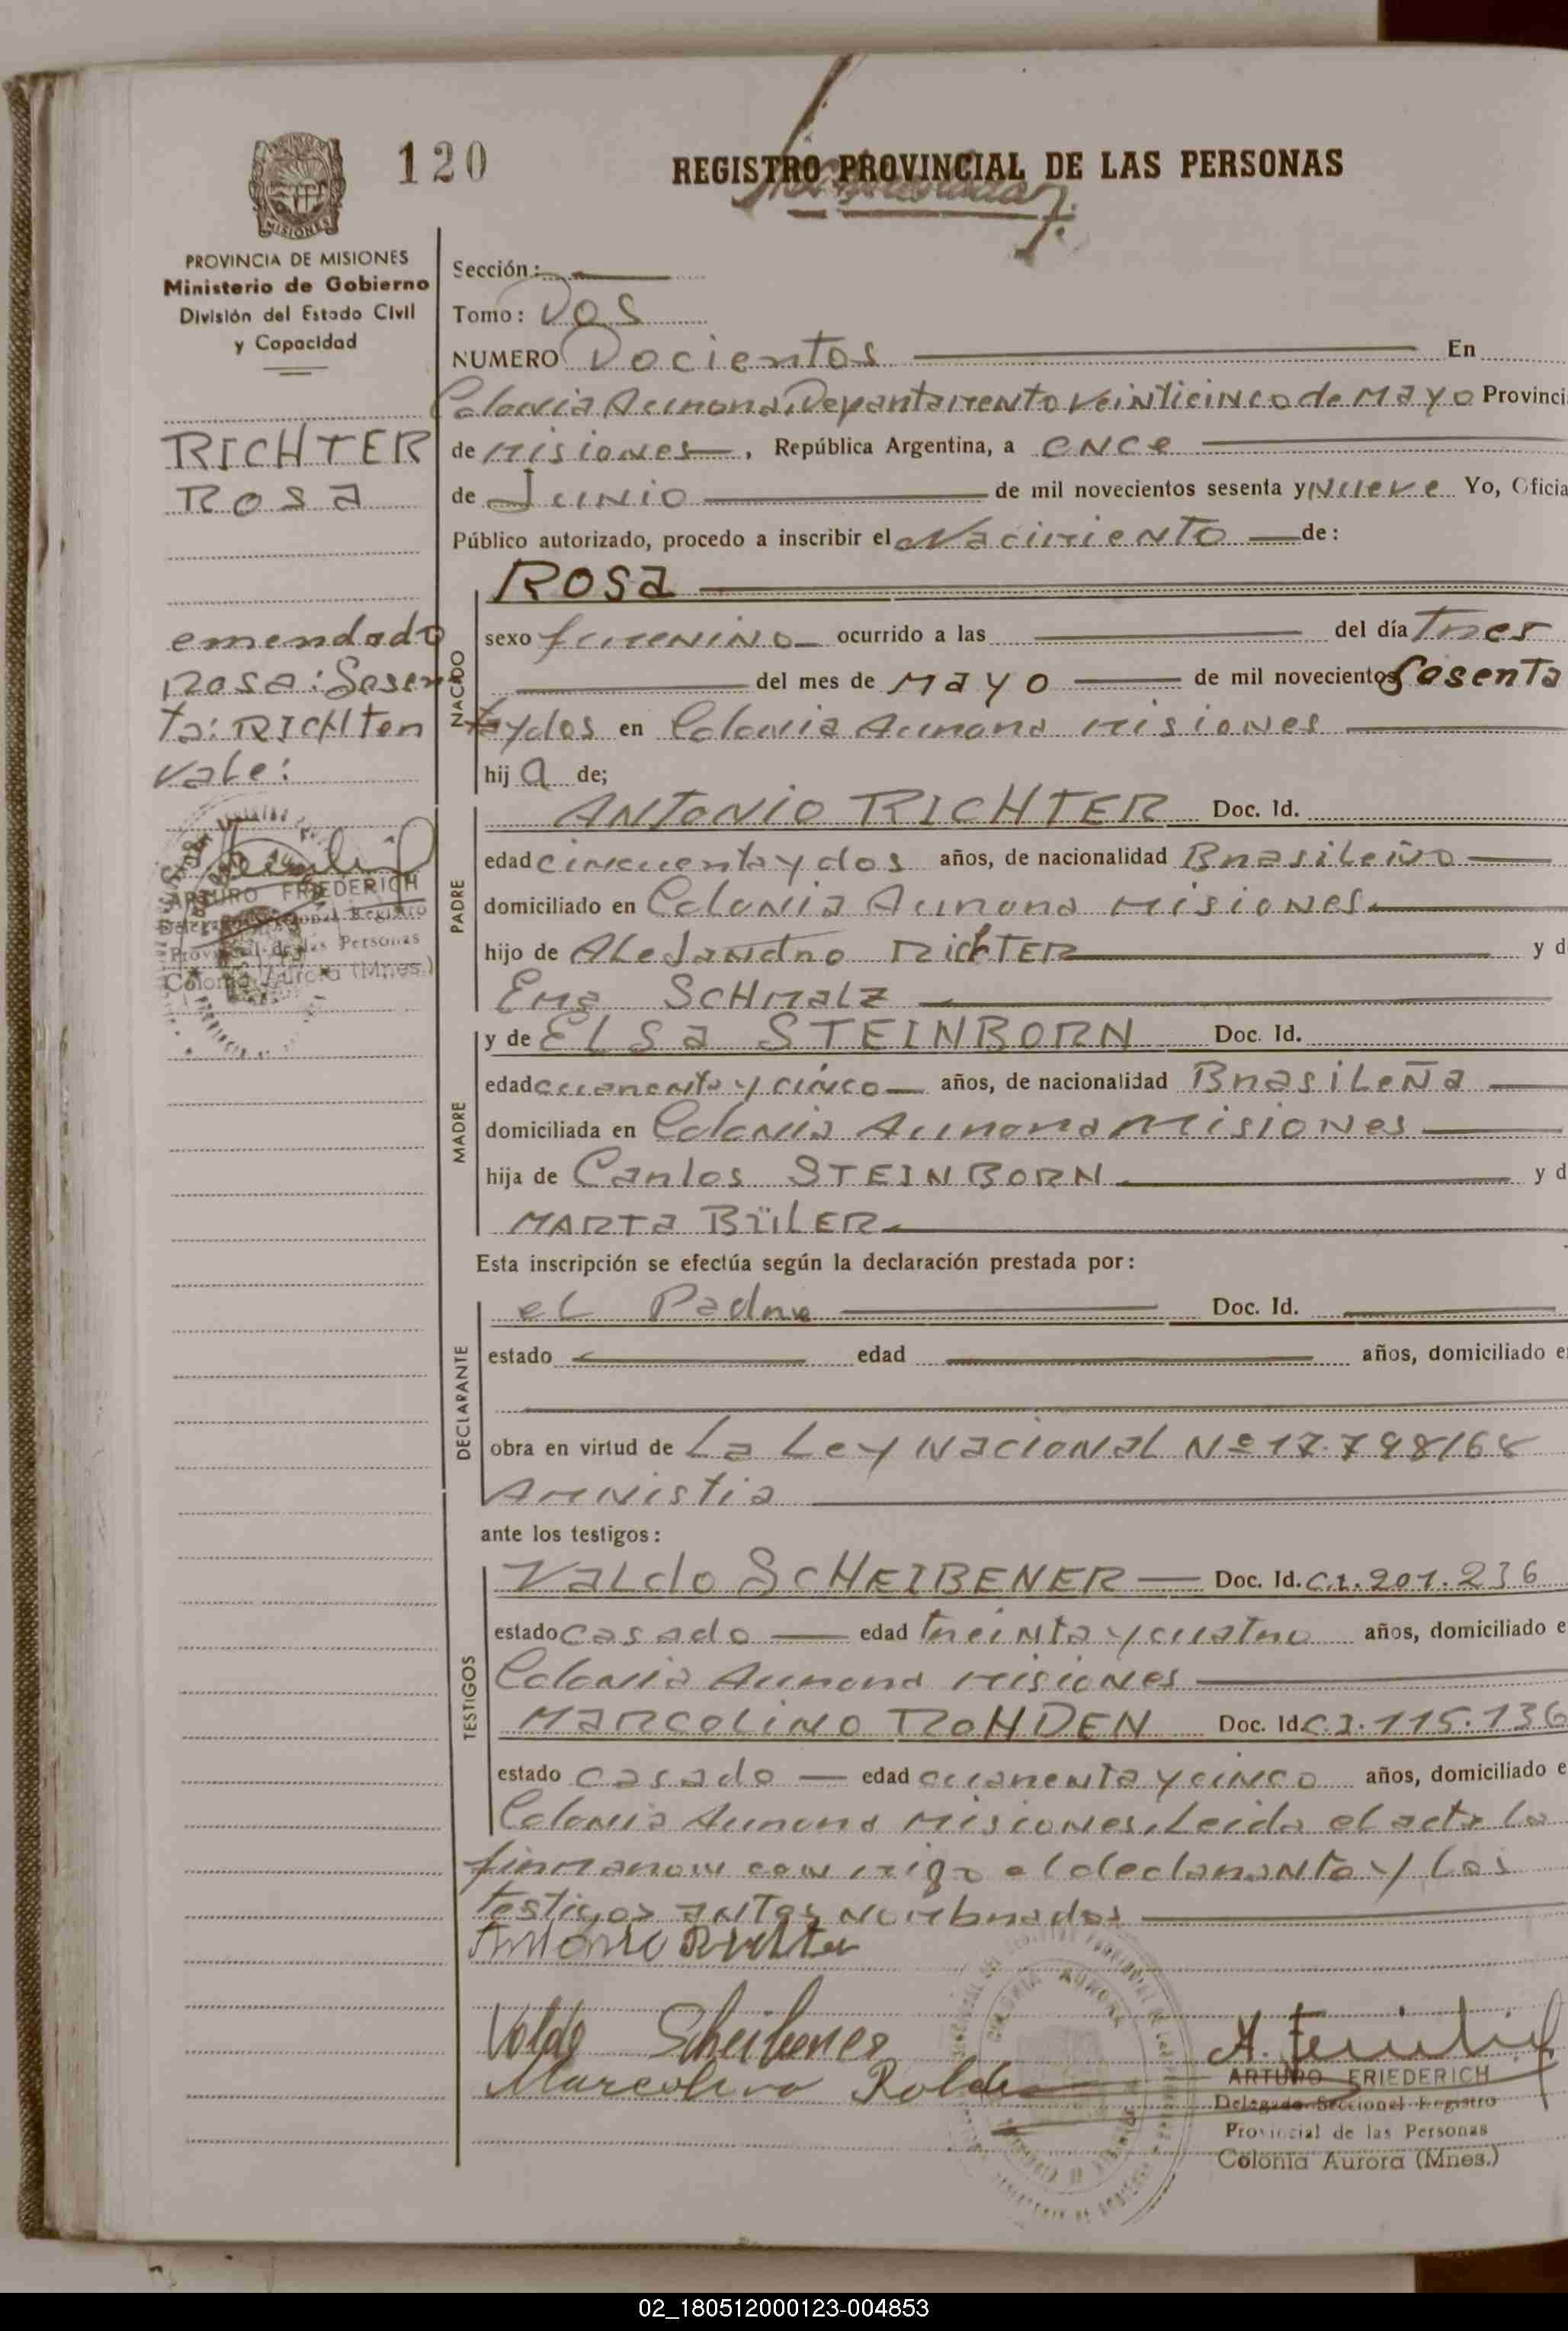 120
REGISTRO PROVINCIAL DE LAS PERSONAS
MISIONES
PROVINCIA DE MISIONES
Ministerio de Gobierno
División del Estado Civil
y Capacidad
Sección:
Tomo: Dos
NUMERO Docientos En
Colonia Aurora, Departamento Veinticinco de Mayo Provinci
RICHTER
de Misiones, República Argentina, a once
ROSA
de Junio de mil novecientos sesenta y Nueve Yo, Oficia
Público autorizado, procedo a inscribir el Nacimiento de:
ROSA
emendado
NACADO
sexo femenino ocurrido a las del día Tres
Rosa: Sesen
del mes de Mayo de mil novecientos Sesenta
ta: RICHter
ydos en Colonia Aurora Misiones
Vale:
hij a de;
PADRE
ANTONIO RICHTER Doc. Id.
edad cincuenta y dos años, de nacionalidad Brasileño
ARTURO FRIEDERICH
Delegado Seccional Registro
Provincial de las Personas
Colonia Aurora (Mnes.)
domiciliado en Colonia Aurora Misiones
hijo de Alejandro RichTER y d
Ema SCHmalz
MADRE
y de ELSA STEINBORN Doc. Id.
edad cuarenta y cinco años, de nacionalidad Brasileña
domiciliada en Colonia Aurora Misiones
hija de Carlos STEINBORN y d
MARTA BüLER
Esta inscripción se efectúa según la declaración prestada por:
DECLARANTE
el Padre Doc. Id.
estado edad años, domiciliado e
obra en virtud de La Ley Nacional Nº 17.798/68
Amnistia
ante los testigos:
TESTIGOS
Valdo SCHEIBENER Doc. Id. C.I. 201.236
estado casado edad treinta y cuatro años, domiciliado e
Colonia Aurora Misiones
MARCOLINO ROHDEN Doc. Id. C.I. 115.136
estado casado edad cuarenta y cinco años, domiciliado e
Colonia Aurora Misiones, Leida el acta la
firmaron con migo el declarante y los
testigos antes nombrados
Antonio Richter
Valdo Scheibener
Marcolino Rohden
A. Friederich
ARTURO FRIEDERICH
Delegado Seccional Registro
Provincial de las Personas
Colonia Aurora (Mnes.)
02_180512000123-004853